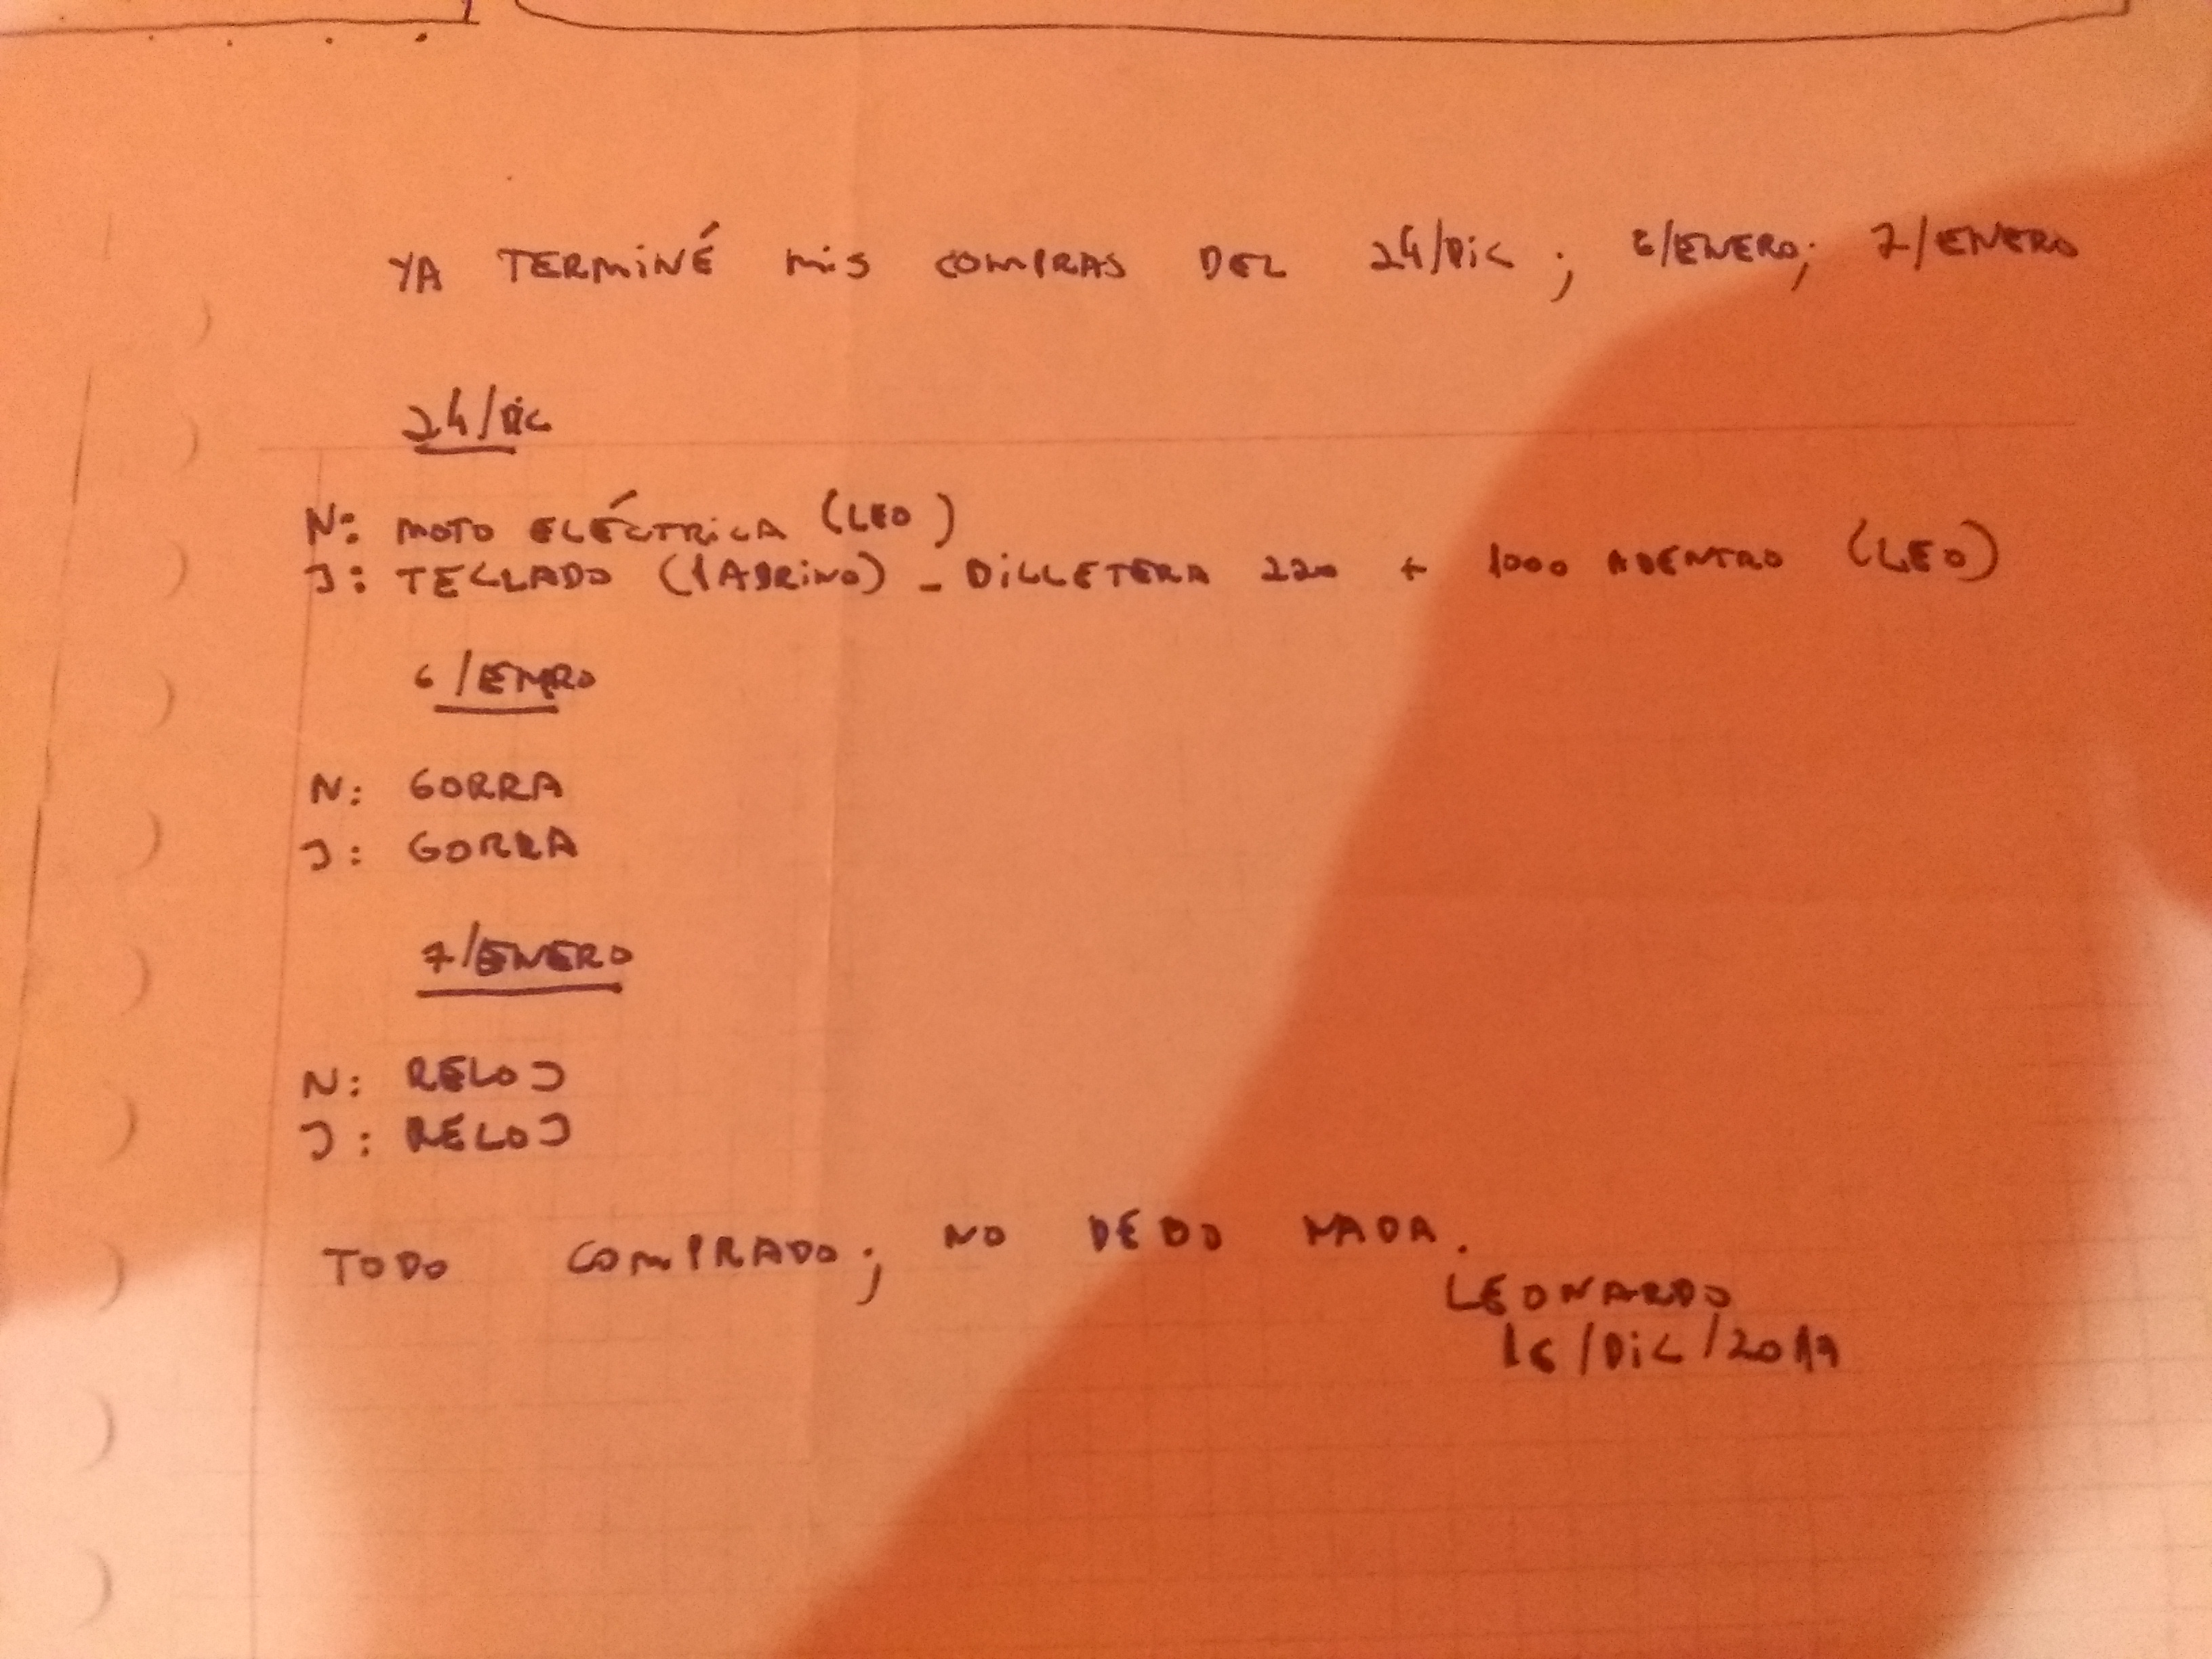 YA TERMINÉ MIS COMPRAS DEL 24/DIC ; 6/ENERO; 7/ENERO
24/DIC
N: MOTO ELÉCTRICA (LEO)
J: TECLADO (PADRINO) - BILLETERA 220 + 1000 ADENTRO (LEO)
6/ENERO
N: GORRA
J: GORRA
7/ENERO
N: RELOJ
J: RELOJ
TODO COMPRADO; NO DEBO NADA.
LEONARDO
16/DIC/2019